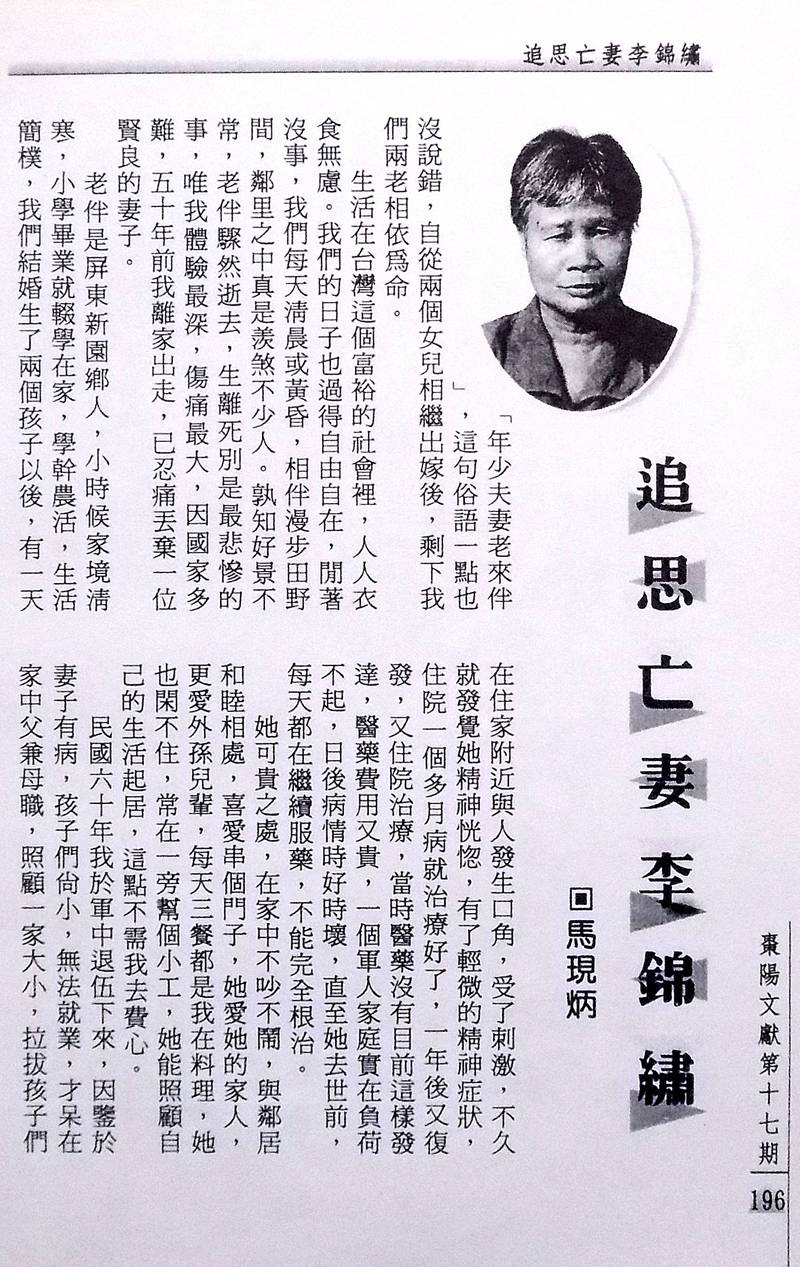 追思亡妻李錦繡
追思亡妻李錦繡
▣馬現炳
「年少夫妻老來伴
」，這句俗語一點也
沒說錯，自從兩個女兒相繼出嫁後，剩下我
們兩老相依爲命。
生活在台灣這個富裕的社會裡，人人衣
食無慮。我們的日子也過得自由自在，閒著
沒事，我們每天清晨或黃昏，相伴漫步田野
間，鄰里之中真是羨煞不少人。孰知好景不
常，老伴驟然逝去，生離死別是最悲慘的
事，唯我體驗最深，傷痛最大，因國家多
難，五十年前我離家出走，已忍痛丟棄一位
賢良的妻子。
老伴是屏東新園鄉人，小時候家境清
寒，小學畢業就輟學在家，學幹農活，生活
簡樸，我們結婚生了兩個孩子以後，有一天
在住家附近與人發生口角，受了刺激，不久
就發覺她精神恍惚，有了輕微的精神症狀，
住院一個多月病就治療好了，一年後又復
發，又住院治療，當時醫藥沒有目前這樣發
達，醫藥費用又貴，一個軍人家庭實在負荷
不起，日後病情時好時壞，直至她去世前，
每天都在繼續服藥，不能完全根治。
她可貴之處，在家中不吵不鬧，與鄰居
和睦相處，喜愛串個門子，她愛她的家人，
更愛外孫兒輩，每天三餐都是我在料理，她
也閑不住，常在一旁幫個小工，她能照顧自
己的生活起居，這點不需我去費心。
民國六十年我於軍中退伍下來，因鑒於
妻子有病，孩子們尙小，無法就業，才呆在
家中父兼母職，照顧一家大小，拉拔孩子們
棗陽文獻第十七期
196